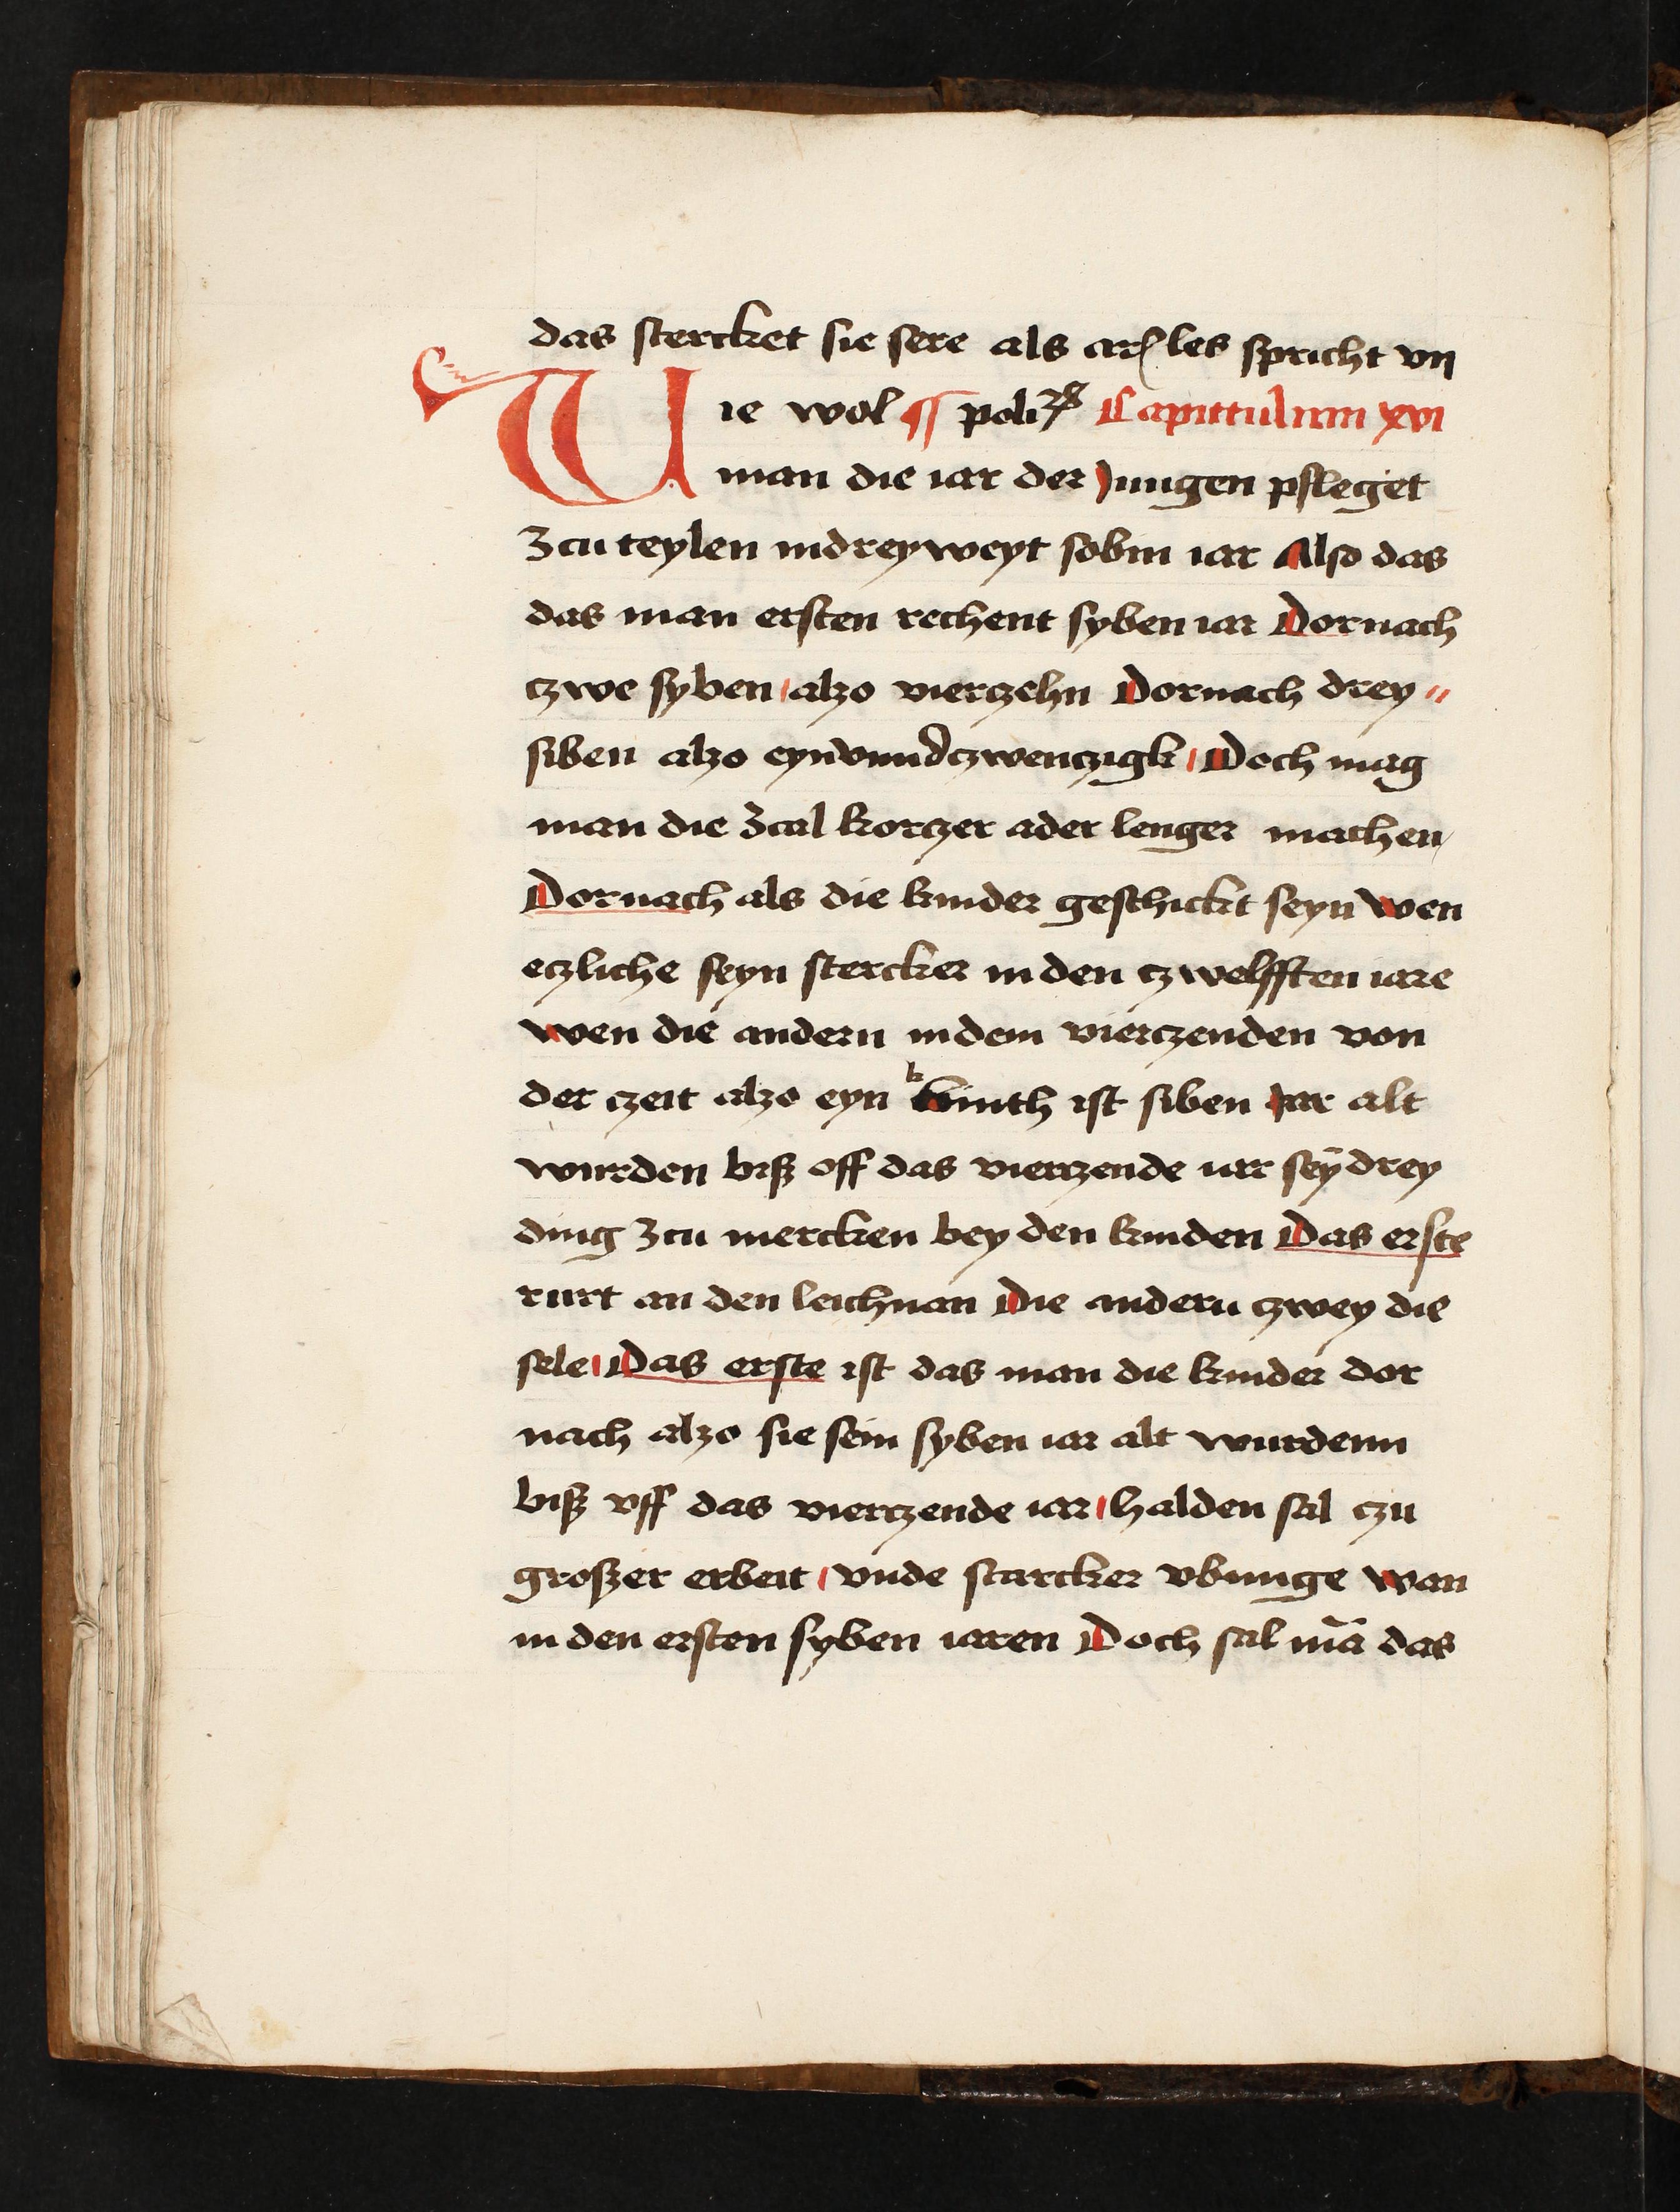 das stercket sie sere als arꝭles spricht vij
Wie wol ¶ poliꝝ Capittulum xvi
man die iar der Jungen pfleget
Zcu teylen indrey weyt sobin iar Also das
das man ersten rechent syben iar Dornach
czwe syben / alzo vierczehn Dornach drey //
siben alzo eynvnndczwenczigk / Doch mag
man die Zcal korczer ader lenger machen /
Dornach als die kinder geschickt seyn wen
eczliche seyn stercker in den czwelfften iare
wen die andern indem vierczenden von
der czeit alzo eyn kinth ist siben Jar alt
wurden biß off das vierczende iar seȳ drey
ding Zcu mercken bey den kinden Das erste
rurt an den leichnan Die andern czwey die
sele / Das erste ist das man die kinder dor
nach alzo sie sein syben iar alt wurdenn
biß vff das vierczende iar / halden sal czu
großer erbeit / vnde starcker vbunge wan
in den ersten syben iaren Doch sal mā das